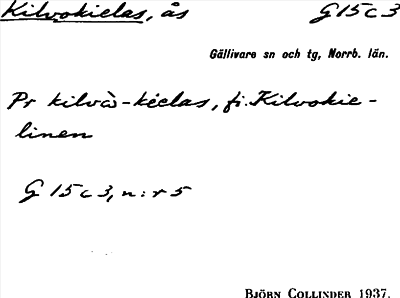 Kilvokielas, ås G 15 c 3
Gällivare sn och tg, Norrb. län.
Pr kilvò-kèelas, fi. Kilvokie-
linen
G 15 c 3, n:r 5
BJÖRN COLLINDER 1937.